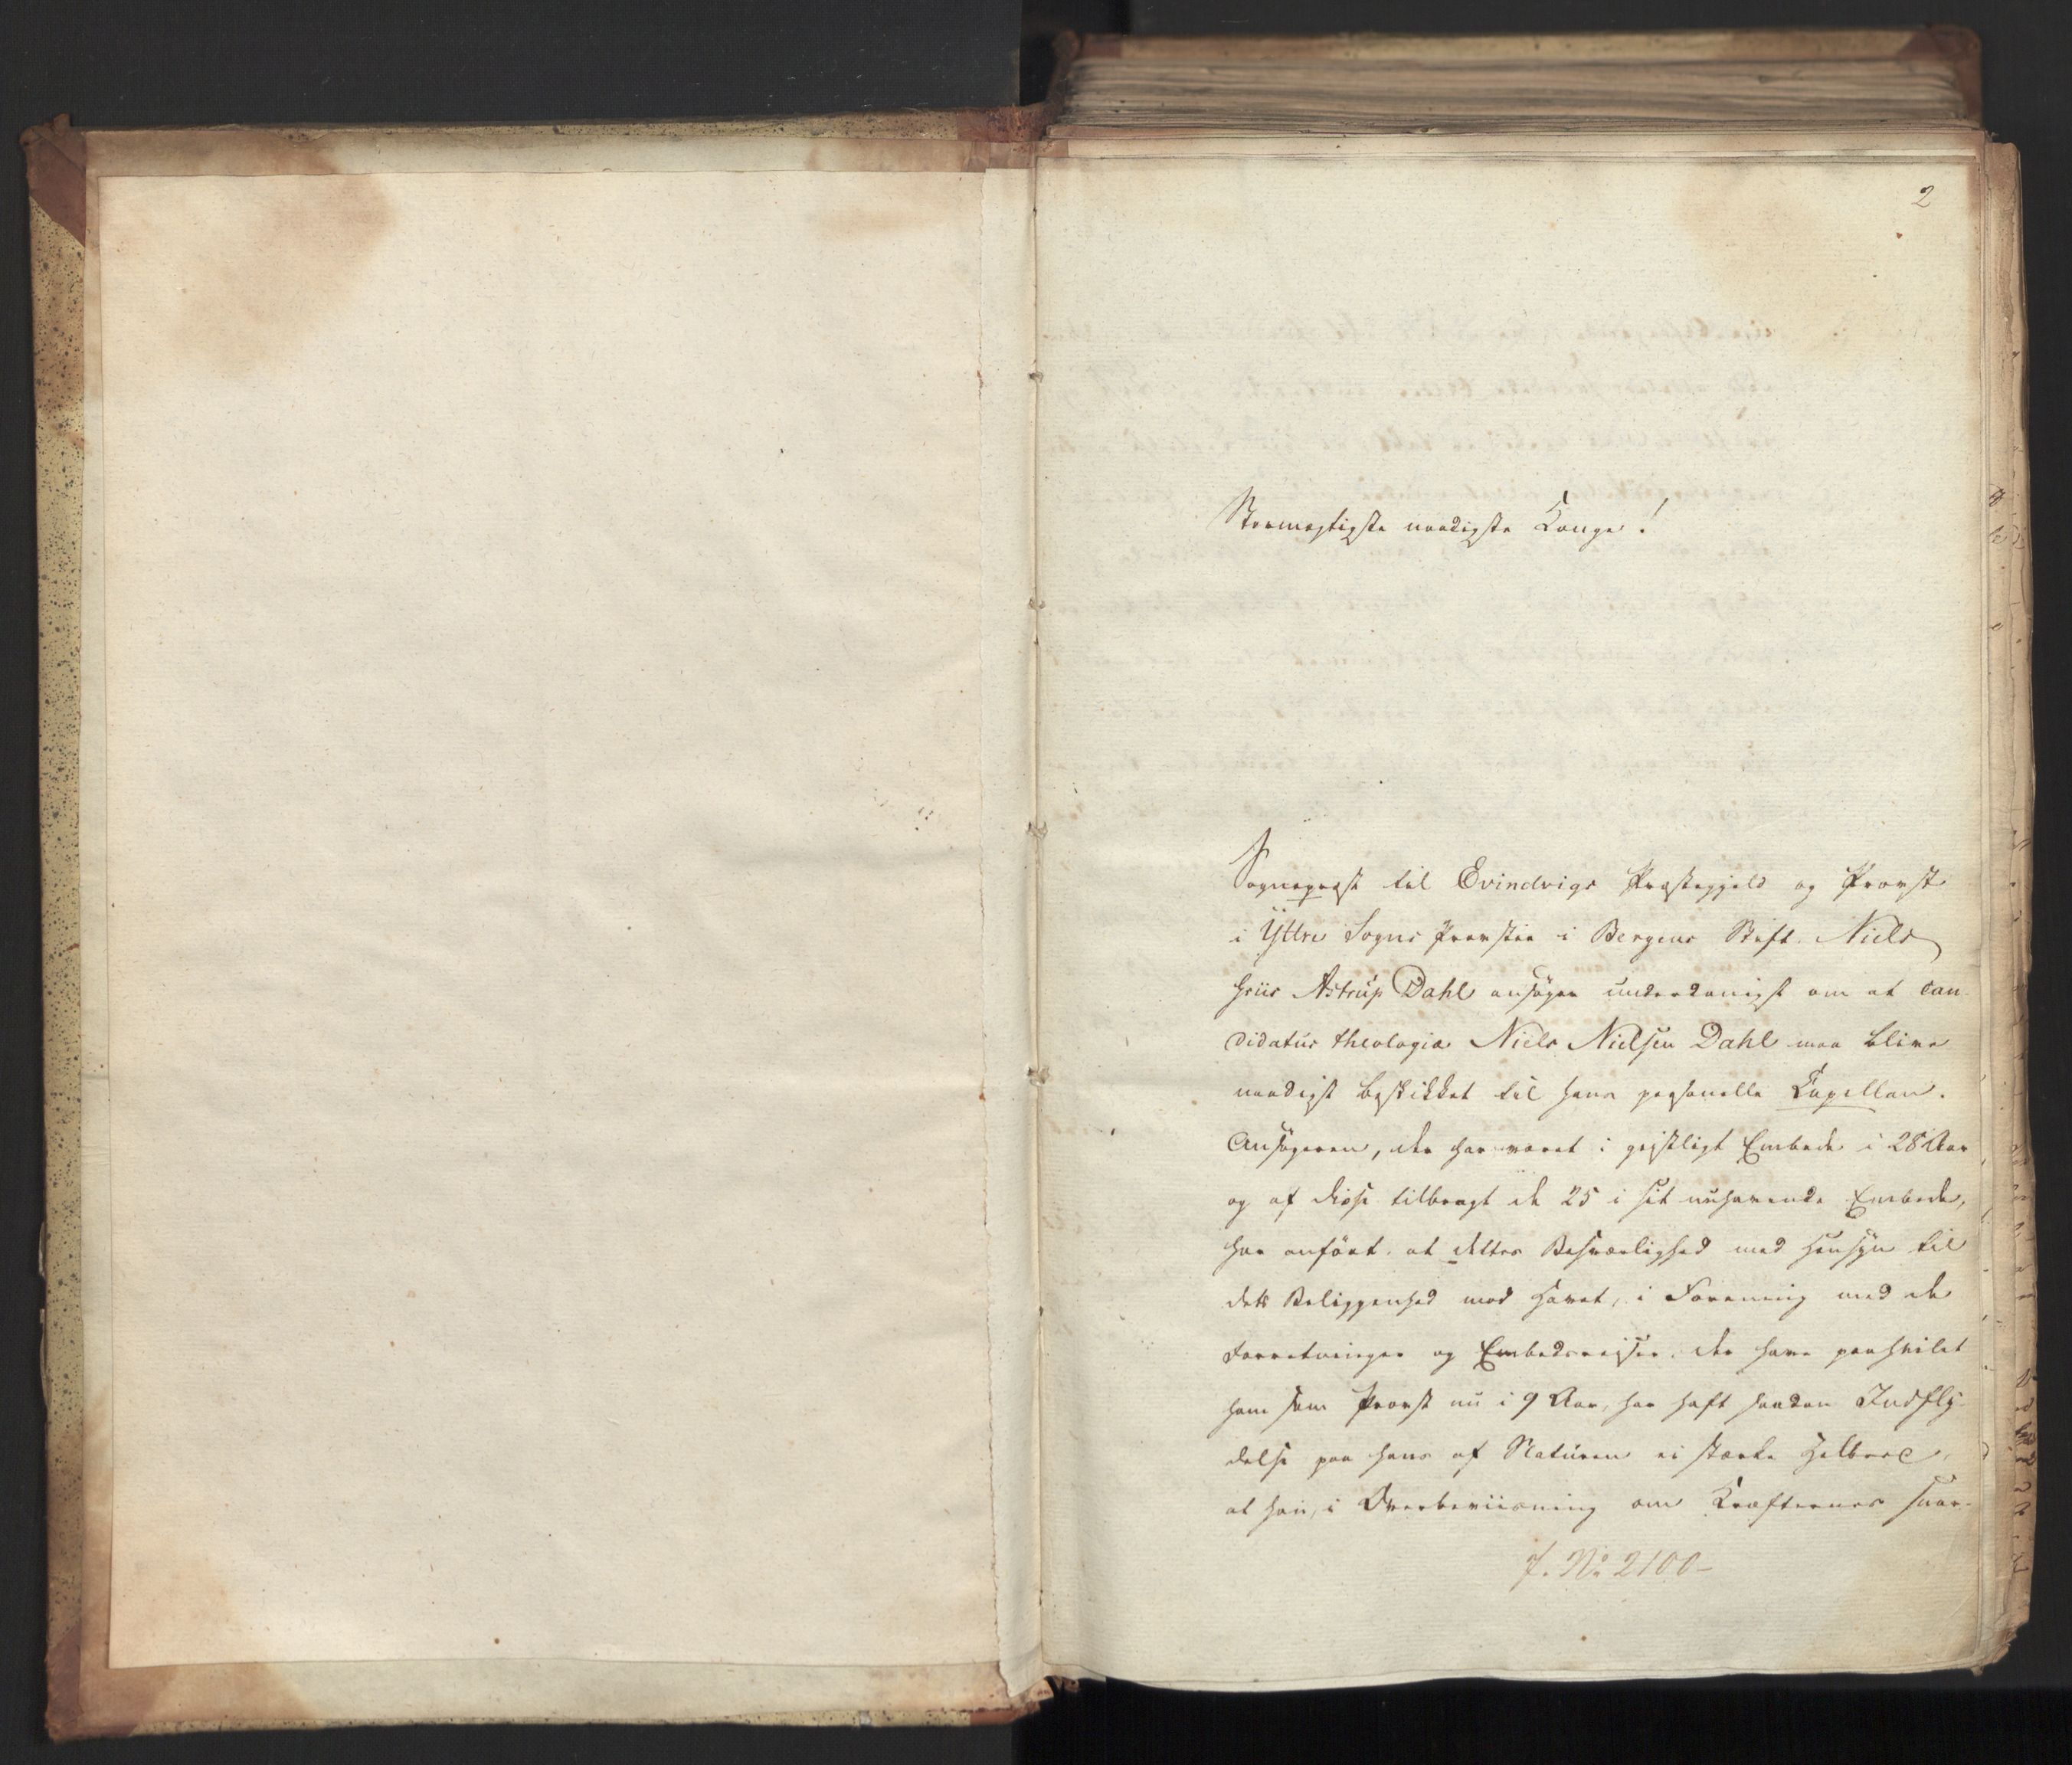 2
Stormægtigste naadigste Konge!
Sognepræst til Evindvigs Præstegjeld og Provst
i Yttre Sogns Provstie i Bergens Stift. Niels
Griis Astrup Dahl ansøger underdanigst om at Can-
didatus theologiæ Niels Nielsen Dahl maa blive
naadigst beskikket til hans personelle Capellan.
Ansøgeren, der har været i geistligt Embede i 28 Aar
og af disse tilbragt de 25 i sit nuhavende Embede,
har anført, at dettes Besværlighed med Hensyn til
dets Beliggenhed mod Havet, i Forening med de
Forretninger og Embedsreiser, der have paahvilet
ham som Provst nu i 9 Aar, har haft saadan Indfly-
delse paa hans af Naturen ei stærke Helbred,
at han, i Overbeviisning om Kræfternes snar-
J. No 2100-